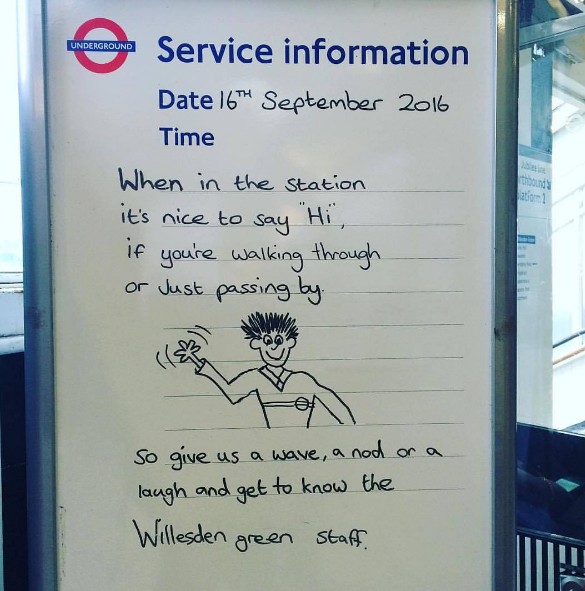 UNDERGROUND
Service information
Date 16TH September 2016
Time
When in the station
it's nice to say "Hi",
if you're walking through
or Just passing by.
So give us a wave, a nod or a
laugh and get to know the
Willesden green staff.
Jubilee line
rthbound
platform 2